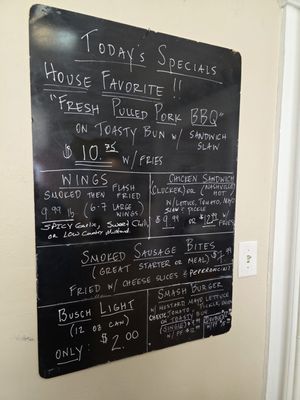 TODAY'S SPECIALS
HOUSE FAVORITE !!
"FRESH PULLED PORK BBQ"
ON TOASTY BUN W/ SANDWICH SLAW
$10.75 W/ FRIES
WINGS
SMOKED THEN FLASH FRIED
9.99 lb (6-7 LARGE WINGS)
SPICY Garlic, Sweet Chili,
or Low Country Mustard
CHICKEN SANDWICH
(CLUCKER) OR (NASHVILLE HOT)
W/ LETTUCE, TOMATO, MAYO
SLAW & PICKLE
$9.99 OR W/ FRIES
SMOKED SAUSAGE BITES
(GREAT STARTER OR MEAL) $7.99
FRIED W/ CHEESE SLICES & PEPERONCINI
BUSCH LIGHT
(12 oz CAN)
ONLY: $2.00
SMASH BURGER
W/ MUSTARD MAYO LETTUCE
CHEESE, TOMATO, PICKLE,
ON TOASTY BUN
SINGLE
DOUBLE